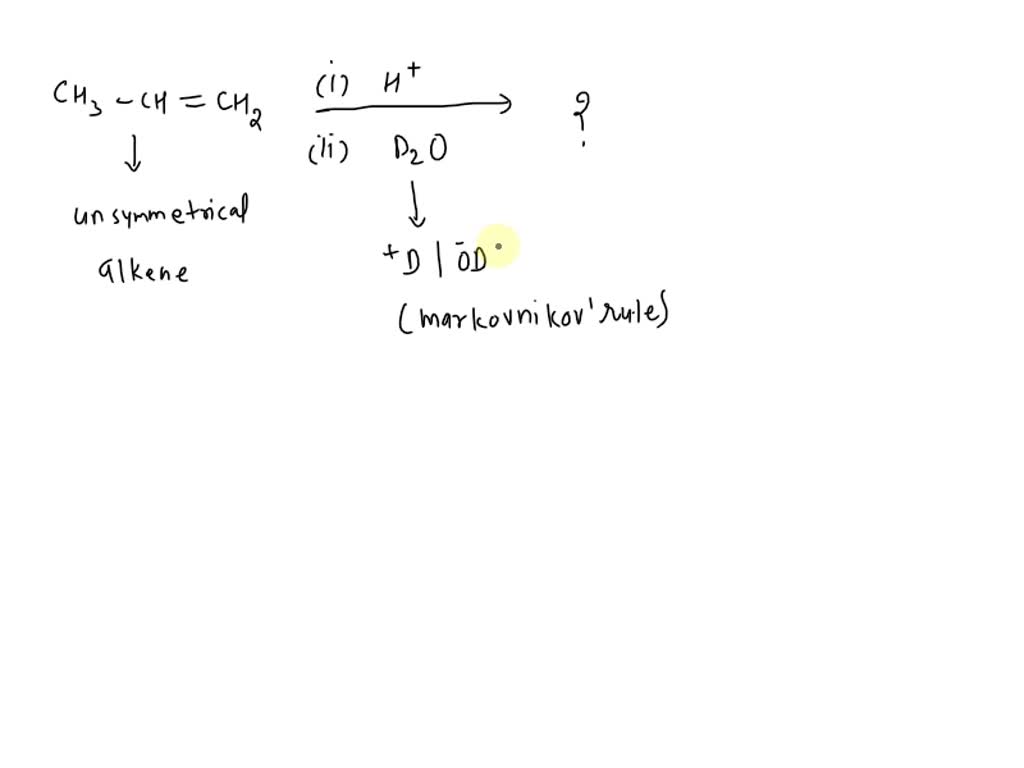 CH3 – CH = CH2 (i) H+ ?
(ii) D2O
unsymmetrical
alkene
+D | ŌD
(markovnikov' rule)